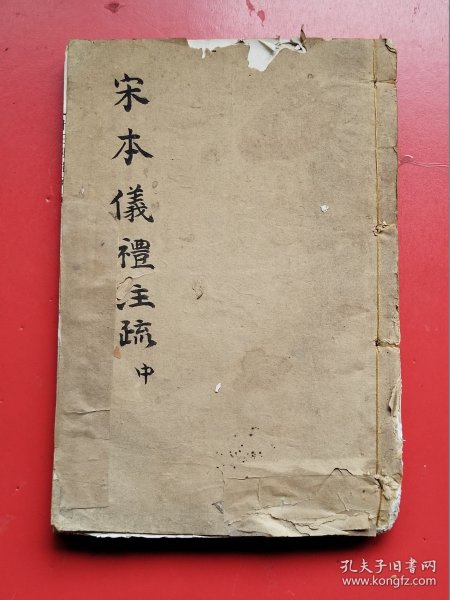 宋本儀禮注疏
中
孔夫子旧书网
www.kongfz.com